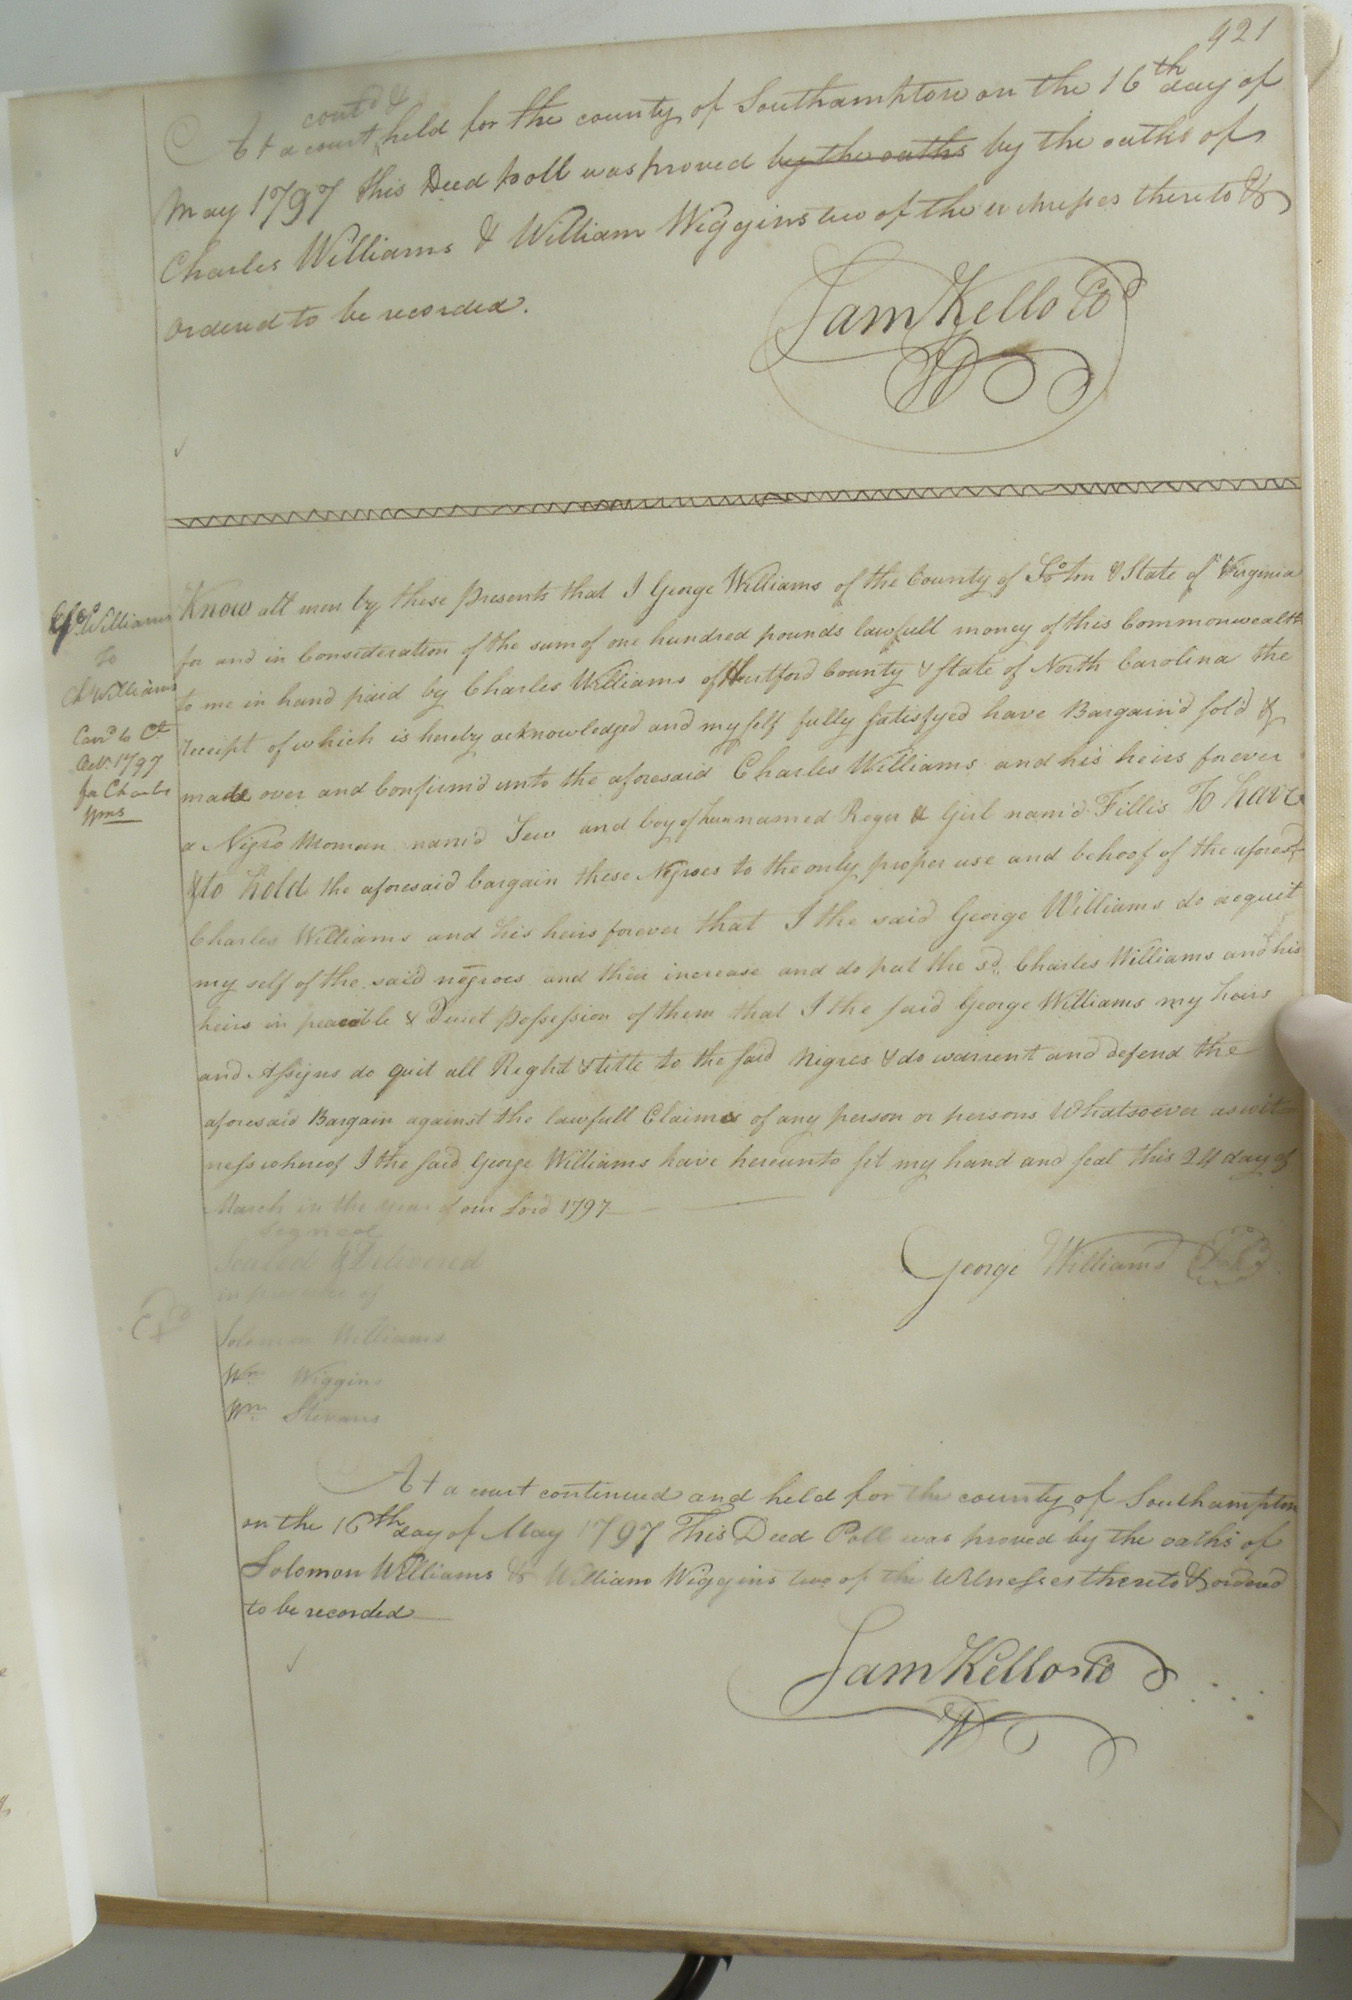 921
contd &
At a court held for the county of Southampton on the 16th day of
May 1797 this Deed poll was proved by the oaths by the oaths of
Charles Williams & William Wiggins two of the witnesses thereto &
ordered to be recorded.
Sam Kello CC
Know all men by these presents that I George Williams of the County of So.ton & State of Virginia
for and in Consideration of the sum of one hundred pounds lawfull money of this Commonwealth
to me in hand paid by Charles Williams of Hertford County & State of North Carolina the
receipt of which is hereby acknowledged and my self fully satisfyed have Bargain'd sold &
made over and Confirm'd unto the aforesaid Charles Williams and his heirs forever
a Negro Woman nam'd and boy of named Roger & Girl nam'd Fillis To have
& to hold the aforesaid bargain these Negroes to the only proper use and behoof of the aforesd
Charles Williams and his heirs forever that I the said George Williams do acquit
my self of the said negroes and their increase and do put the sd. Charles Williams and his
heirs in peaceble & Quiet Possession of them that I the said George Williams my heirs
and Assigns do quit all Right & title to the said Nigres & do warrent and defend the
aforesaid Bargain against the lawfull Claims of any person or persons Whatsoever as wit-
ness whereof I the said George Williams have hereunto set my hand and seal this 24 day of
March in the year of our Lord 1797
Geo Williams
to
Ch Williams
to Ct
Oct. 1797
for Charles
Wms
Signed
Sealed & Delivered
in presence of
George Williams Seal
Solomon Williams
Wm Wiggins
Wm Stevens
At a court continued and held for the county of Southampton
on the 16th day of May 1797 This Deed Poll was proved by the oaths of
Solomon Williams & William Wiggins two of the Witnesses thereto & ordered
to be recorded
Sam Kello CC